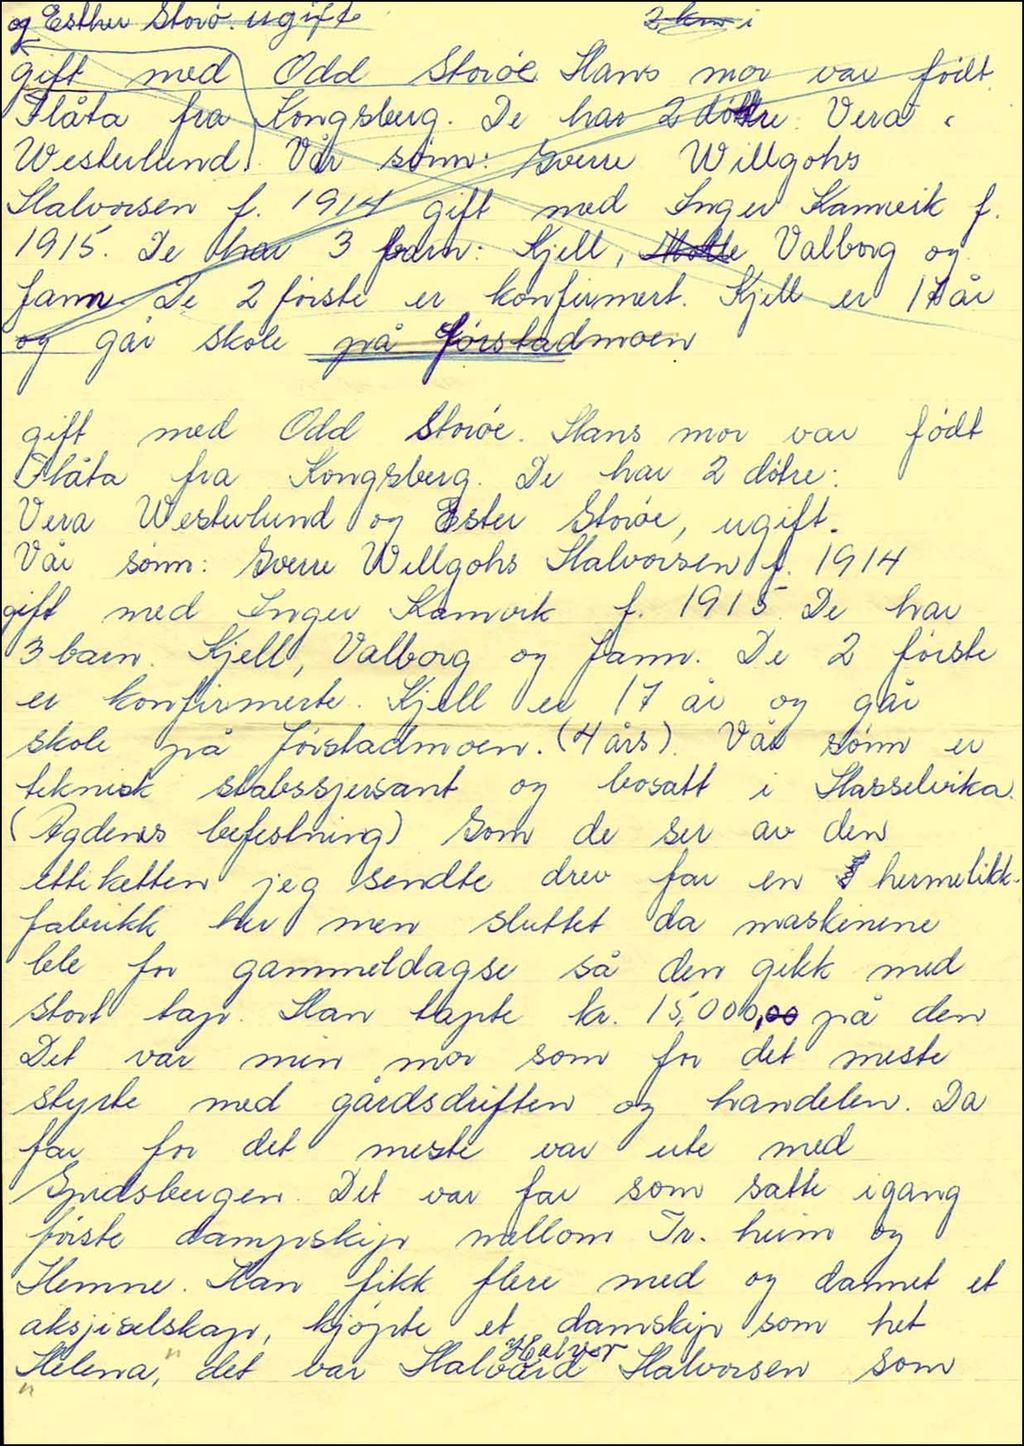 og Esther Storø. ugift
gift med Odd Storøe Hans mor var født
Flåta fra Kongsberg. De har 2 døtre: Vera
Westerlund. Vår sønn: Sverre Willgohs
Halvorsen f. 1914 gift med Inger Kamvik f.
1915. De har 3 barn: Kjell, Valborg og
Jann. De 2 første er konfirmert. Kjell er 17 år
og går skole på Jørstadmoen
gift med Odd Storøe. Hans mor var født
Flåta fra Kongsberg. De har 2 døtre:
Vera Westerlund og Ester Storøe, ugift.
Vår sønn: Sverre Willgohs Halvorsen f. 1914
gift med Inger Kamvik f. 1915. De har
3 barn. Kjell, Valborg og Jann. De 2 første
er konfirmerte. Kjell er 17 år og går
skole på Jørstadmoen. (4 års). Vår sønn er
teknisk stabssjersant og bosatt i Hasselvika.
(Agdenes befestning) Som de ser av den
ettiketten jeg sendte drev far en hermetikk-
fabrikk her men sluttet da maskinene
ble for gammeldagse så den gikk med
stort tap. Han tapte kr. 15,000,00 på den
Det var min mor som for det meste
styrte med gårdsdriften og handelen. Da
far for det meste var ute med
Spidsbergen. Det var far som satte igang
første dampskip mellom Tr. heim og
Hemne. Han fikk flere med og dannet et
aksjeselskap, kjøpte et damskip som het
"Helena," det var Halvard Halvor Halvorsen som